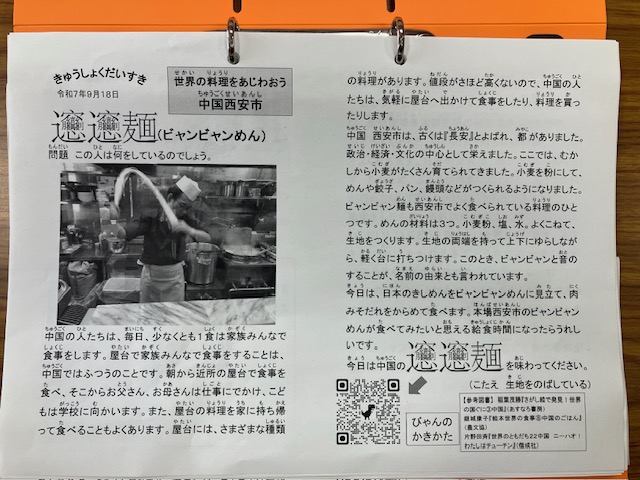 きゅうしょくだいすき
令和7年9月18日
世界の料理をあじわおう
中国西安市
𰻞𰻞麺(ビャンビャンめん)
問題 この人は何をしているのでしょう。
中国の人たちは、毎日、少なくとも1食は家族みんなで
食事をします。屋台で家族みんなで食事をすることは、
中国ではふつうのことです。朝から近所の屋台で食事を
食べ、そこからお父さん、お母さんは仕事にでかけ、こど
もは学校に向かいます。また、屋台の料理を家に持ち帰
って食べることもよくあります。屋台には、さまざまな種類
の料理があります。値段がさほど高くないので、中国の人
たちは、気軽に屋台へ出かけて食事をしたり、料理を買っ
たりします。
中国 西安市は、古くは『長安』とよばれ、都がありました。
政治・経済・文化の中心として栄えました。ここでは、むか
しから小麦がたくさん育てられてきました。小麦を粉にして、
めんや餃子、パン、饅頭などがつくられるようになりました。
ビャンビャン麺も西安市でよく食べられている料理のひと
つです。めんの材料は3つ。小麦粉、塩、水。よくこねて、
生地をつくります。生地の両端を持って上下にゆらしなが
ら、軽く台に打ちつけます。このとき、ビャンビャンと音の
することが、名前の由来とも言われています。
今日は、日本のきしめんをビャンビャンめんに見立て、肉
みそだれをからめて食べます。本場西安市のビャンビャン
めんが食べてみたいと思える給食時間になったらうれし
いです。
今日は中国の𰻞𰻞麺を味わってください。
(こたえ 生地をのばしている)
びゃんの
かきかた
【参考図書】 稲葉茂勝『さがし絵で発見!世界
の国ぐに③中国』(あすなろ書房)
銀城康子『絵本世界の食事⑤中国のごはん』
(農文協)
片野田斉『世界のともだち22中国 ニーハオ!
わたしはチューチン』(偕成社)